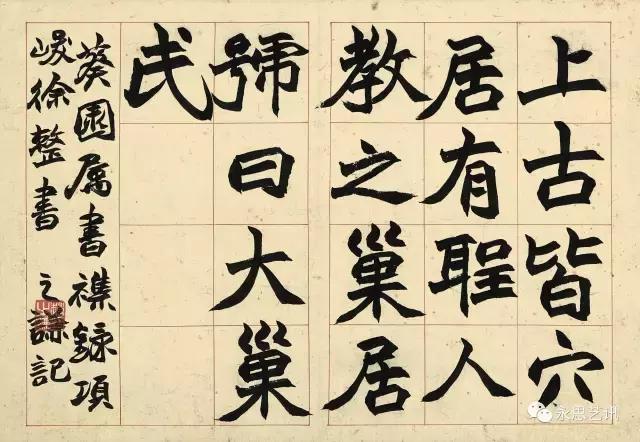 上古皆穴
居有聖人
教之巢居
號曰大巢
氏
葵園属書襍録項
峻徐整書 之謙記
永思艺讯